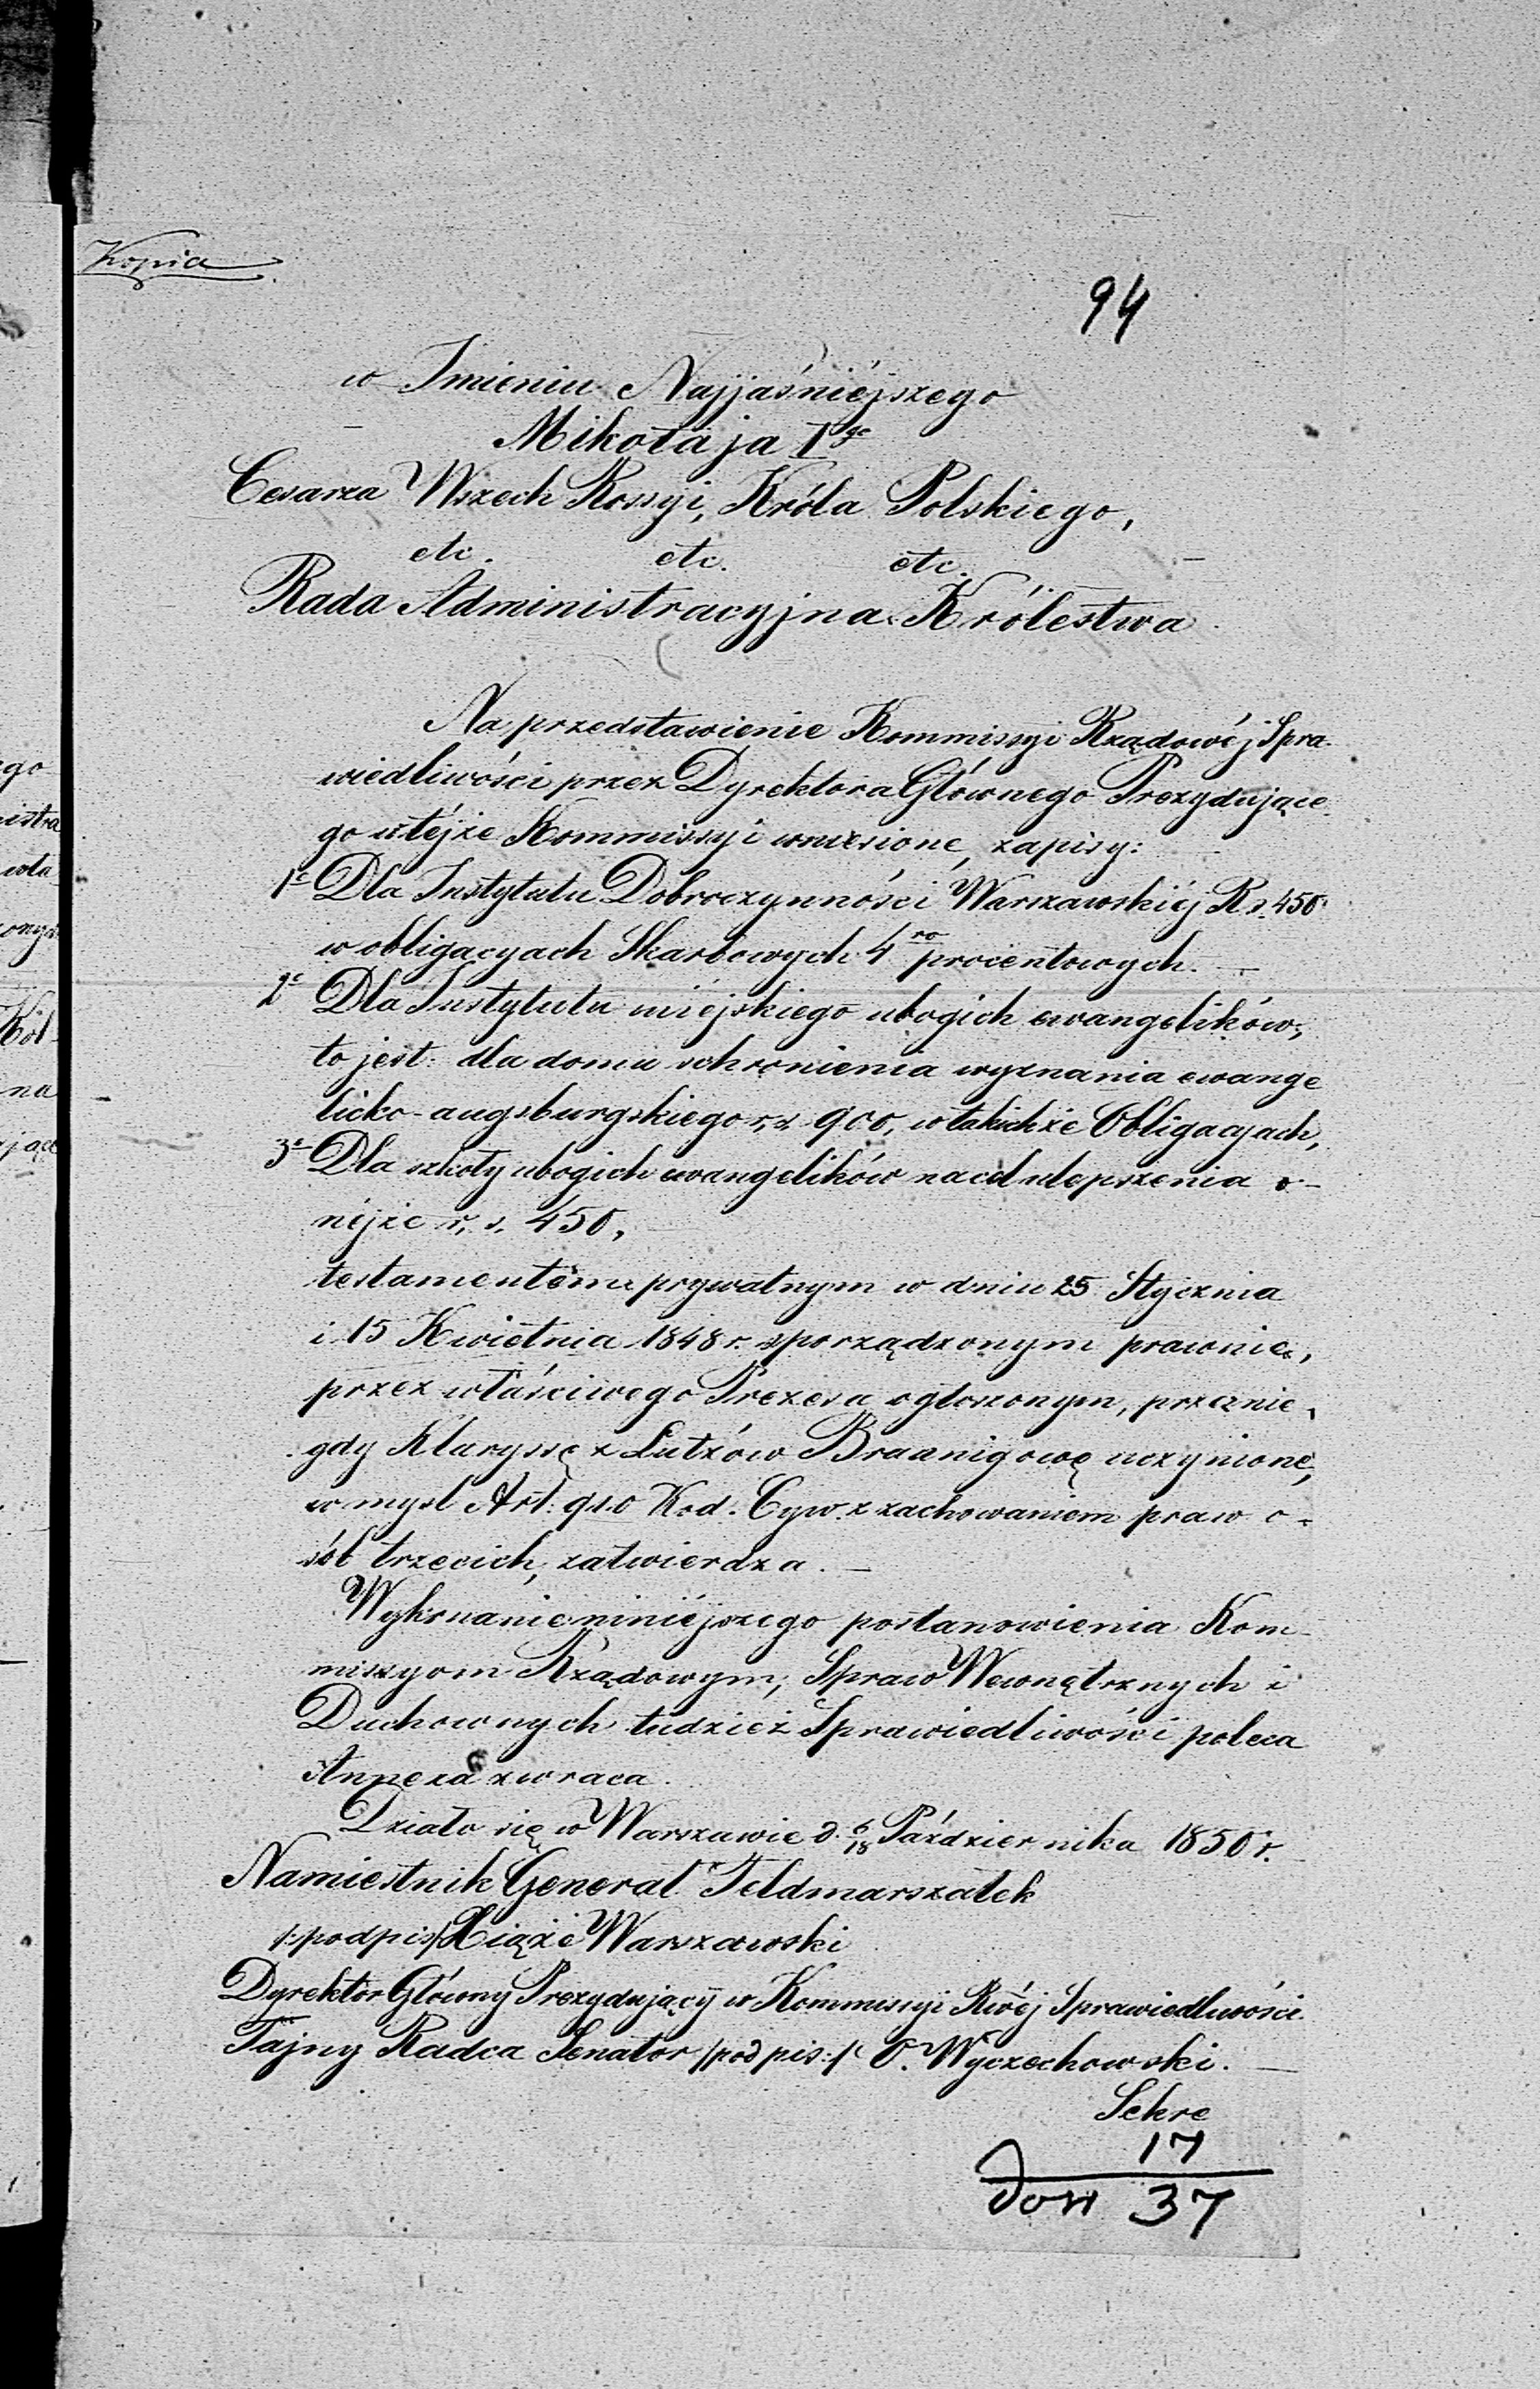 Kopia
94
w Imieniu Najjaśniéjszego
Mikołaja Igo
Cesarza Wszech Rossyi, Króla Polskiego,
etc. etc. etc.
Rada Administracyjna Królestwa
Na przedstawienie Kommissyi Rządowéj Spra-
wiedliwości przez Dyrektora Głównego Prezydujące-
go w téjże Kommissyi wniesione, zapisy:
1e Dla Instytutu Dobroczynności Warszawskiéj Rs. 450
w obligacyach Skarbowych 4ro procentowych. —
2e Dla Instytutu miejskiego ubogich ewangelików,
to jest: dla domu schronienia wyznania ewange
licko-augsburgskiego r, s. 900, w takichże Obligacyach,
3e Dla szkoły ubogich ewangelików na cel ulepszenia o-
néjże r, s. 450,
testamentem prywatnym w dniu 25 Stycznia
i 15 Kwietnia 1848 r. sporządzonym prawnie,
przez właściwego Prezesa ogłoszonym, przez nie-
gdy Klaryssę z Lutzów Braunigową uczynione,
w mysl Art: 910 Kod. Cyw. z zachowaniem praw o-
sób trzecich, zatwierdza. —
Wykonanie niniéjszego postanowienia Kom-
missyom Rządowym, Spraw Wewnętrznych i
Duchownych tudzież Sprawiedliwości poleca
Annexa zwraca.
Działo się w Warszawie d. 6/18 Października 1850 r.
Namiestnik Generał Feldmarszałek
/:podpis/ Xiążę Warszawski
Dyrektor Główny Prezydujący w Kommissyi Rwéj Sprawiedliwości
Tajny Radca Senator /podpis:/ O. Wyczechowski. —
Sekre
17
dow 37
ego
nistra
na